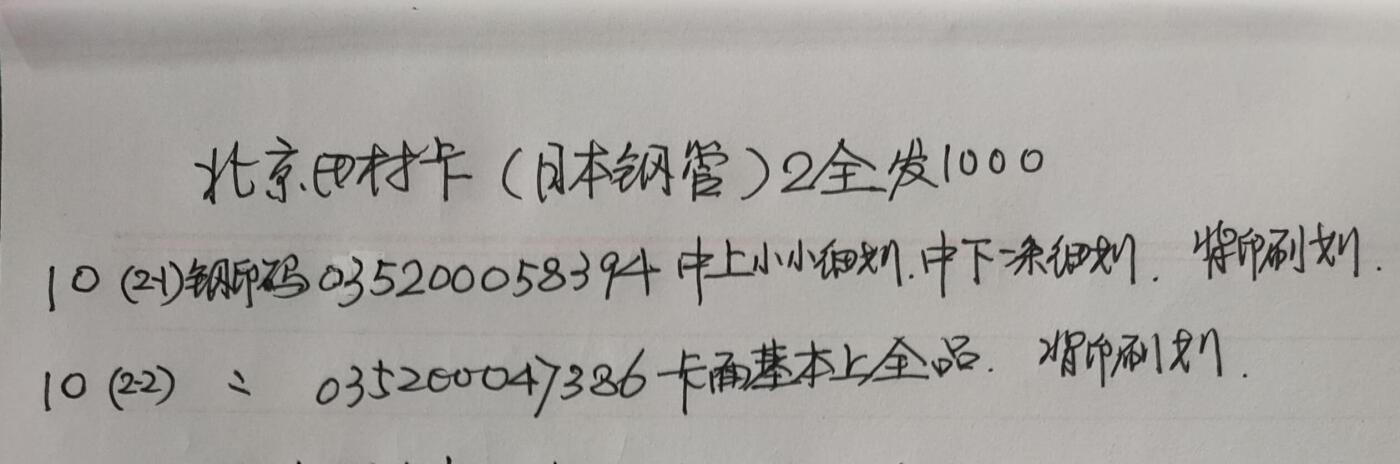 北京田村卡（日本钢管）2全发1000
10（2-1）钢印码035200058394中上小小细划.中下一条细划.背印刷划.
10（2-2）〃 035200047386卡面基本上全品.背印刷划.